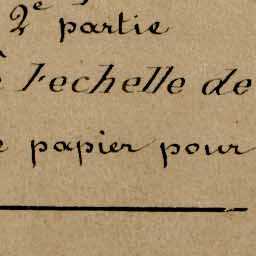 2e partie
l'echelle de
papier pour